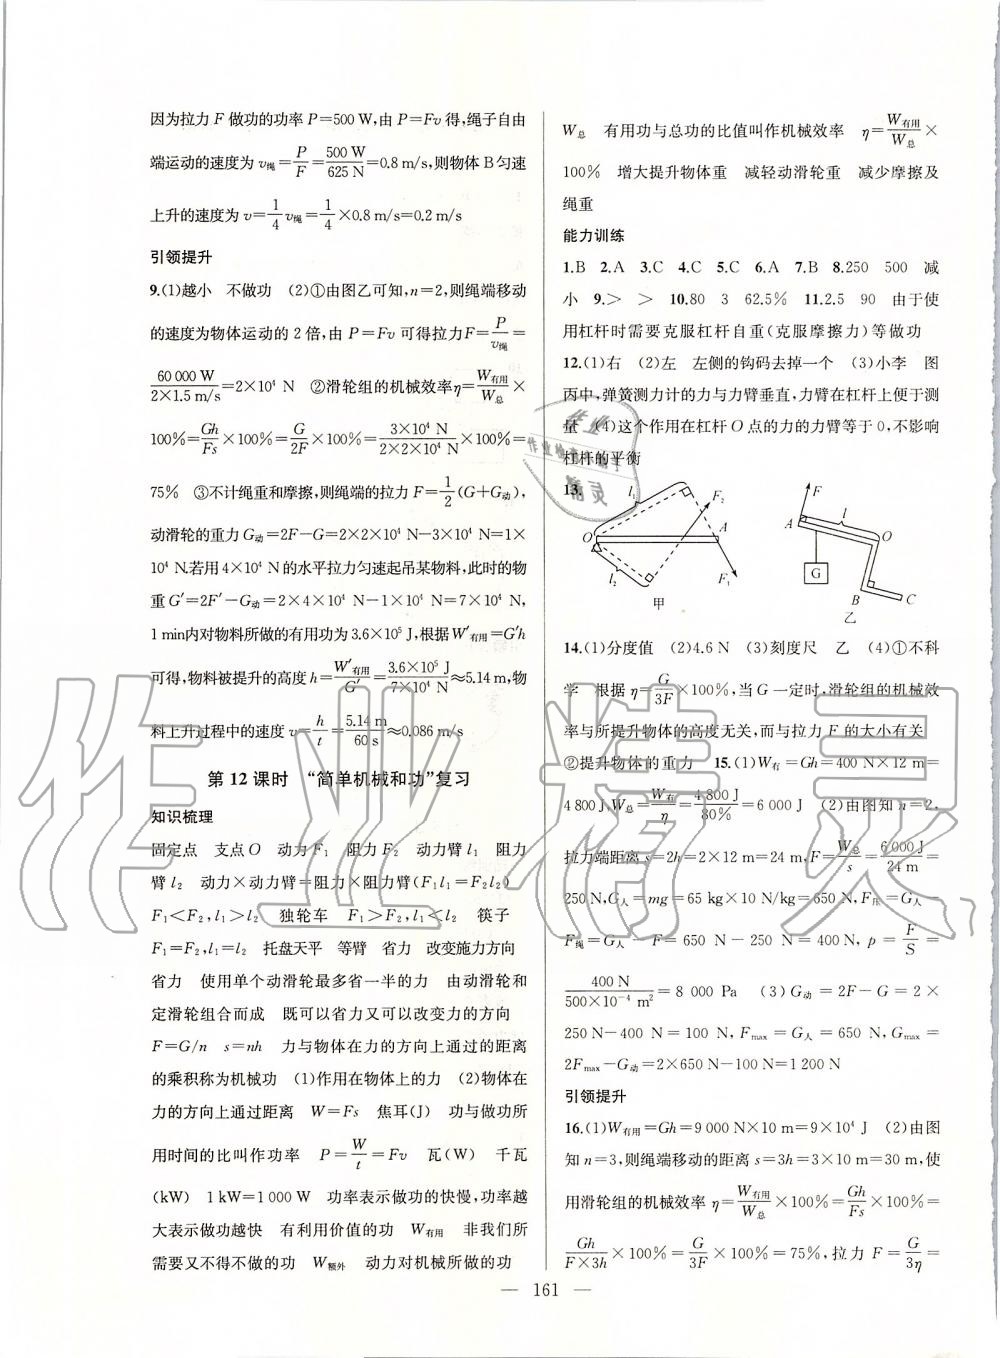 因为拉力 F 做功的功率 P=500 W,由 P=Fv 得,绳子自由
端运动的速度为 v绳=P/F=500 W/625 N=0.8 m/s,则物体 B 匀速
上升的速度为 v=1/4 v绳=1/4×0.8 m/s=0.2 m/s
引领提升
9.(1)越小 不做功 (2)①由图乙可知,n=2,则绳端移动
的速度为物体运动的 2 倍,由 P=Fv 可得拉力F=P/v绳=
60 000 W/2×1.5 m/s=2×10⁴ N ②滑轮组的机械效率η=W有用/W总×
100%=Gh/Fs×100%=G/2F×100%=3×10⁴ N/2×2×10⁴ N×100%=
75% ③不计绳重和摩擦,则绳端的拉力 F=1/2(G+G动),
动滑轮的重力 G动=2F-G=2×2×10⁴ N-3×10⁴ N=1×
10⁴ N.若用 4×10⁴ N 的水平拉力匀速起吊某物料,此时的物
重 G′=2F′-G动=2×4×10⁴ N-1×10⁴ N=7×10⁴ N,
1 min内对物料所做的有用功为 3.6×10⁵ J,根据 W′有用=G′h
可得,物料被提升的高度 h=W′有用/G′=3.6×10⁵ J/7×10⁴ N≈5.14 m,物
料上升过程中的速度 v=h/t=5.14 m/60 s≈0.086 m/s
第 12 课时 “简单机械和功”复习
知识梳理
固定点 支点 O 动力 F₁ 阻力 F₂ 动力臂 l₁ 阻力
臂 l₂ 动力×动力臂=阻力×阻力臂(F₁l₁=F₂l₂)
F₁<F₂,l₁>l₂ 独轮车 F₁>F₂,l₁<l₂ 筷子
F₁=F₂,l₁=l₂ 托盘天平 等臂 省力 改变施力方向
省力 使用单个动滑轮最多省一半的力 由动滑轮和
定滑轮组合而成 既可以省力又可以改变力的方向
F=G/n s=nh 力与物体在力的方向上通过的距离
的乘积称为机械功 (1)作用在物体上的力 (2)物体在
力的方向上通过距离 W=Fs 焦耳(J) 功与做功所
用时间的比叫作功率 P=W/t=Fv 瓦(W) 千瓦
(kW) 1 kW=1 000 W 功率表示做功的快慢,功率越
大表示做功越快 有利用价值的功 W有用 非我们所
需要又不得不做的功 W额外 动力对机械所做的功
W总 有用功与总功的比值叫作机械效率 η=W有用/W总×
100% 增大提升物体重 减轻动滑轮重 减少摩擦及
绳重
能力训练
1.B 2.A 3.C 4.C 5.C 6.A 7.B 8.250 500 减
小 9.> > 10.80 3 62.5% 11.2.5 90 由于使
用杠杆时需要克服杠杆自重(克服摩擦力)等做功
12.(1)右 (2)左 左侧的钩码去掉一个 (3)小李 图
丙中,弹簧测力计的力与力臂垂直,力臂在杠杆上便于测
量 (4)这个作用在杠杆 O 点的力的力臂等于 0,不影响
杠杆的平衡
13.
l₁ F₂ O A l₂ F₁
甲
F A l O G B C
乙
14.(1)分度值 (2)4.6 N (3)刻度尺 乙 (4)①不科
学 根据 η=G/3F×100%,当 G 一定时,滑轮组的机械效
率与所提升物体的高度无关,而与拉力 F 的大小有关
②提升物体的重力 15.(1)W有=Gh=400 N×12 m=
4 800 J,W总=W有/η=4 800 J/80%=6 000 J (2)由图知 n=2,
拉力端距离 s=2h=2×12 m=24 m,F=W总/s=6 000 J/24 m=
250 N,G人=mg=65 kg×10 N/kg=650 N,F压=G人-
F绳=G人-F=650 N-250 N=400 N,p=F/S=
400 N/500×10⁻⁴ m²=8 000 Pa (3)G动=2F-G=2×
250 N-400 N=100 N,Fmax=G人=650 N,Gmax=
2Fmax-G动=2×650 N-100 N=1 200 N
引领提升
16.(1)W有用=Gh=9 000 N×10 m=9×10⁴ J (2)由图
知 n=3,则绳端移动的距离 s=3h=3×10 m=30 m,使
用滑轮组的机械效率 η=W有用/W总×100%=Gh/Fs×100%=
Gh/F×3h×100%=G/3F×100%=75%,拉力 F=G/3η=
— 161 —
作业精灵